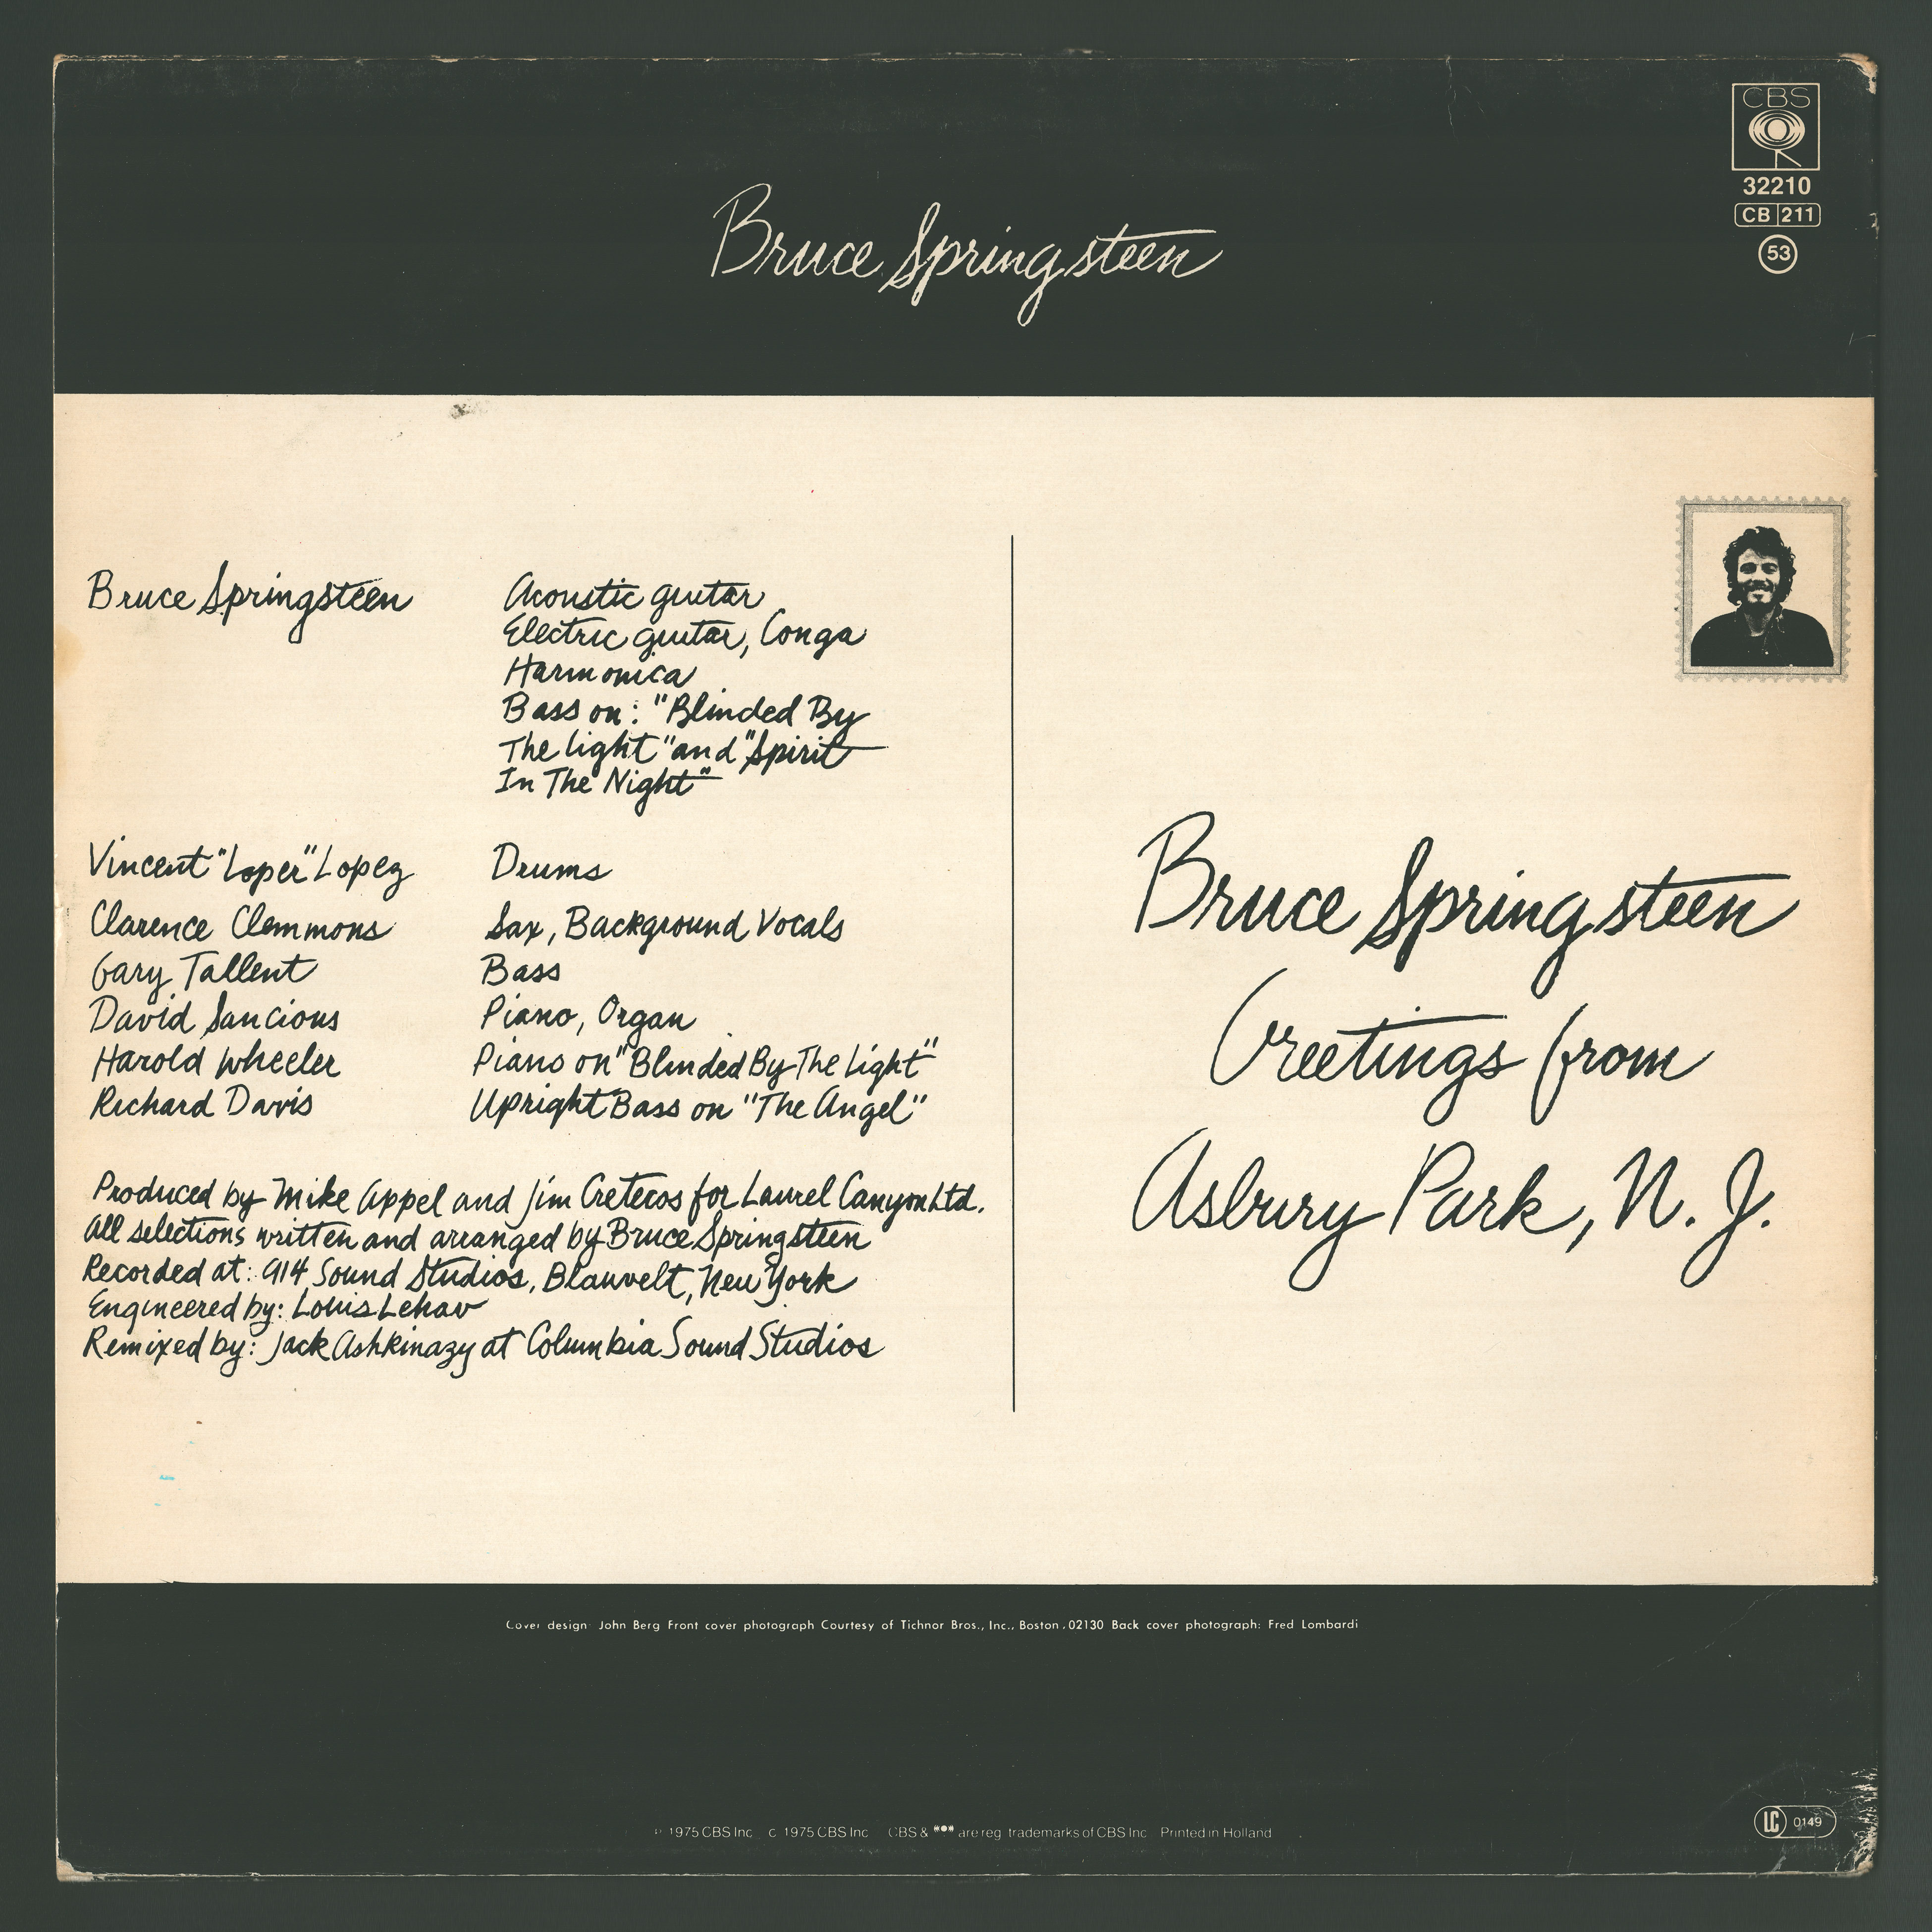 CBS
32210
CB 211
53
Bruce Springsteen
Bruce Springsteen
Acoustic guitar
Electric guitar, Conga
Harmonica
Bass on: "Blinded By
The Light" and "Spirit
In The Night"
Vincent "Loper" Lopez Drums
Clarence Clemmons Sax, Background Vocals
Gary Tallent Bass
David Sancious Piano, Organ
Harold Wheeler Piano on "Blinded By The Light"
Richard Davis Upright Bass on "The Angel"
Produced by Mike Appel and Jim Cretecos for Laurel Canyon Ltd.
All selections written and arranged by Bruce Springsteen
Recorded at: 914 Sound Studios, Blauvelt, New York
Engineered by: Louis Lehav
Remixed by: Jack Ashkinazy at Columbia Sound Studios
Bruce Springsteen
Greetings from
Asbury Park, N. J.
Cover design: John Berg Front cover photograph Courtesy of Tichnor Bros., Inc., Boston, 02130 Back cover photograph: Fred Lombardi
P 1975 CBS Inc c 1975 CBS Inc CBS & are reg trademarks of CBS Inc Printed in Holland
LC 0149